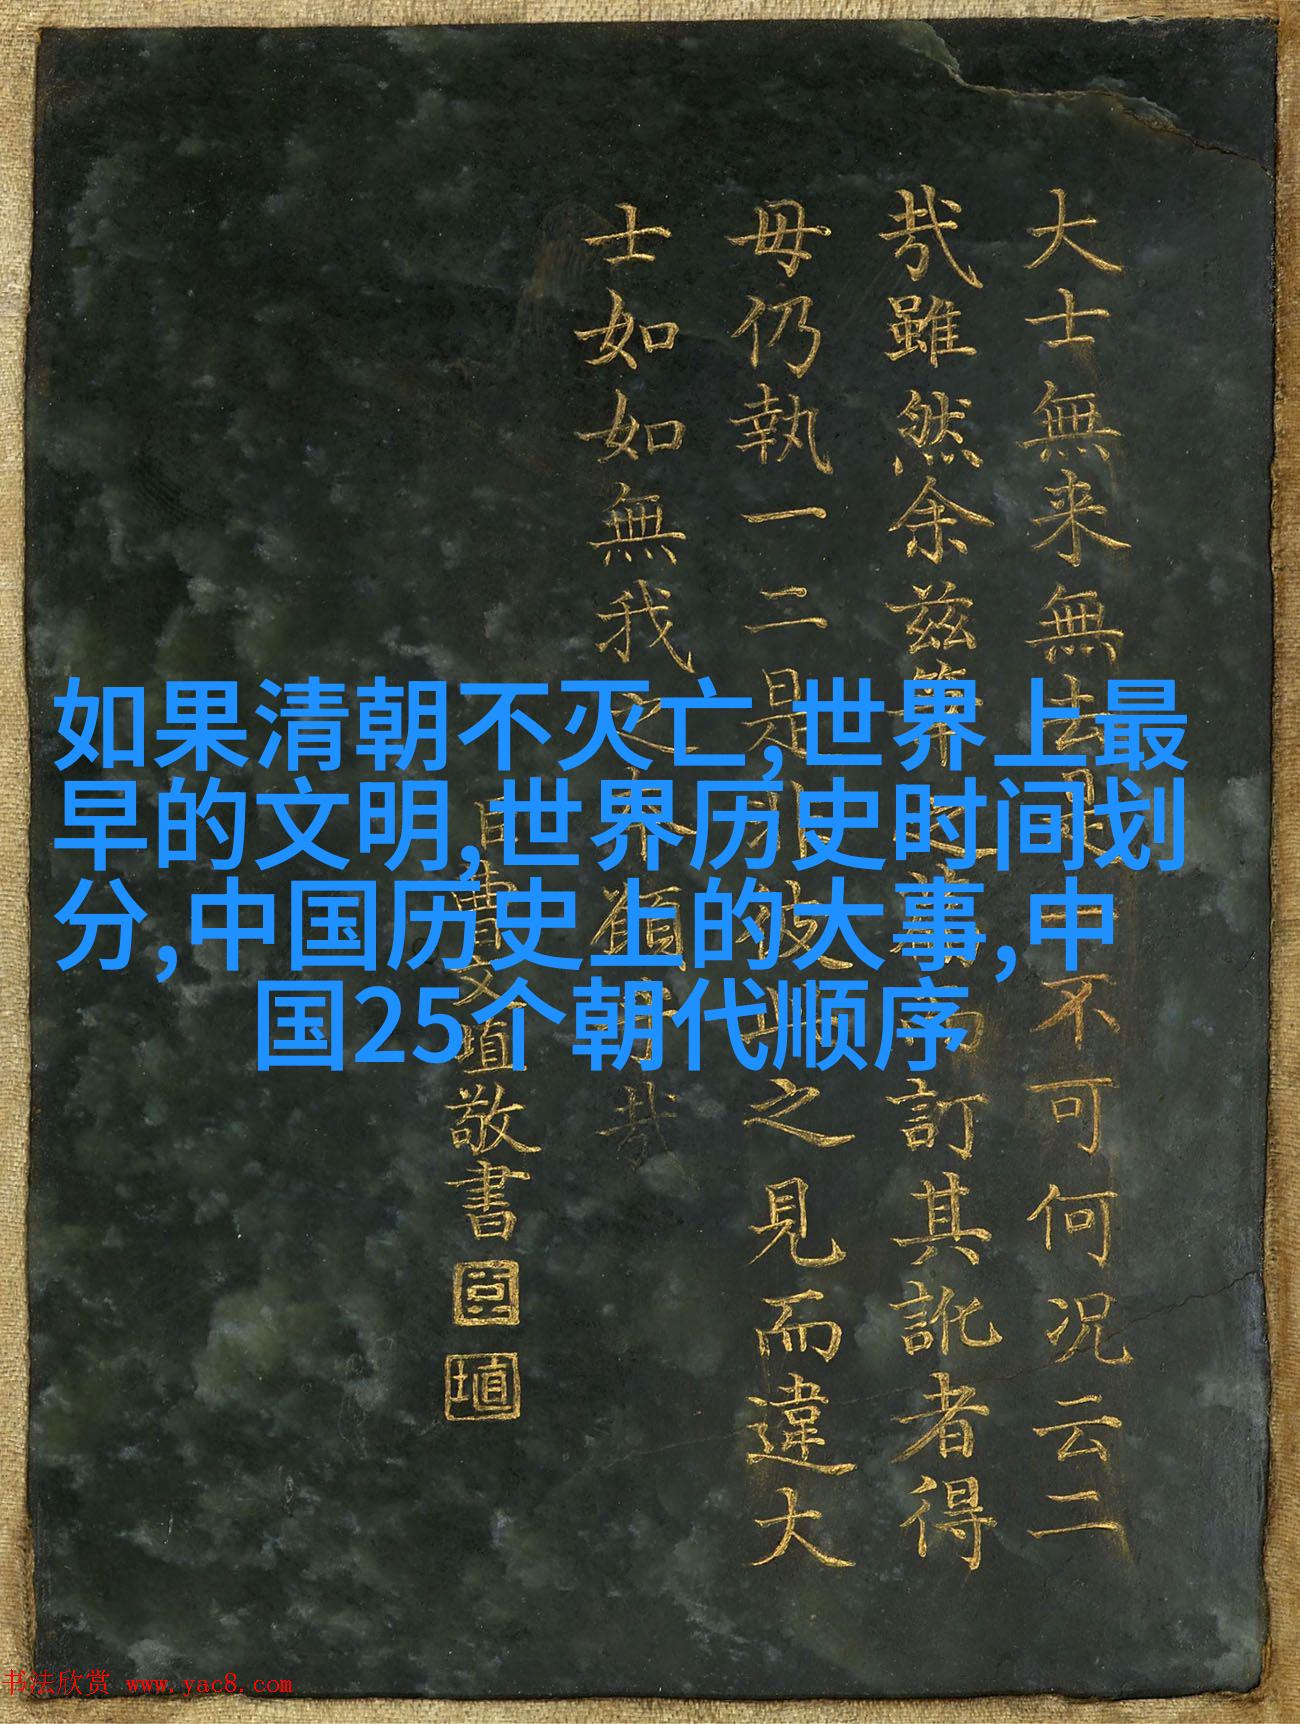 如果清朝不灭亡,世界上最
早的文明,世界历史时间划
分,中国历史上的大事,中
国25个朝代顺序
大士無来無去不可何况云二
哉雖然余兹訂其訛者得
毋仍執一二是非彼此之見而違大
士如如無我之願哉
臣曹文埴敬書
臣
埴
书法欣赏 www.yac8.com